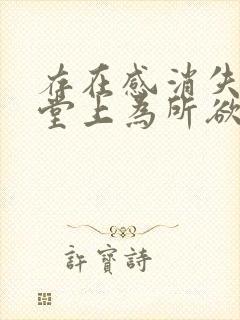 存在感消失
堂上為所欲
許寶詩